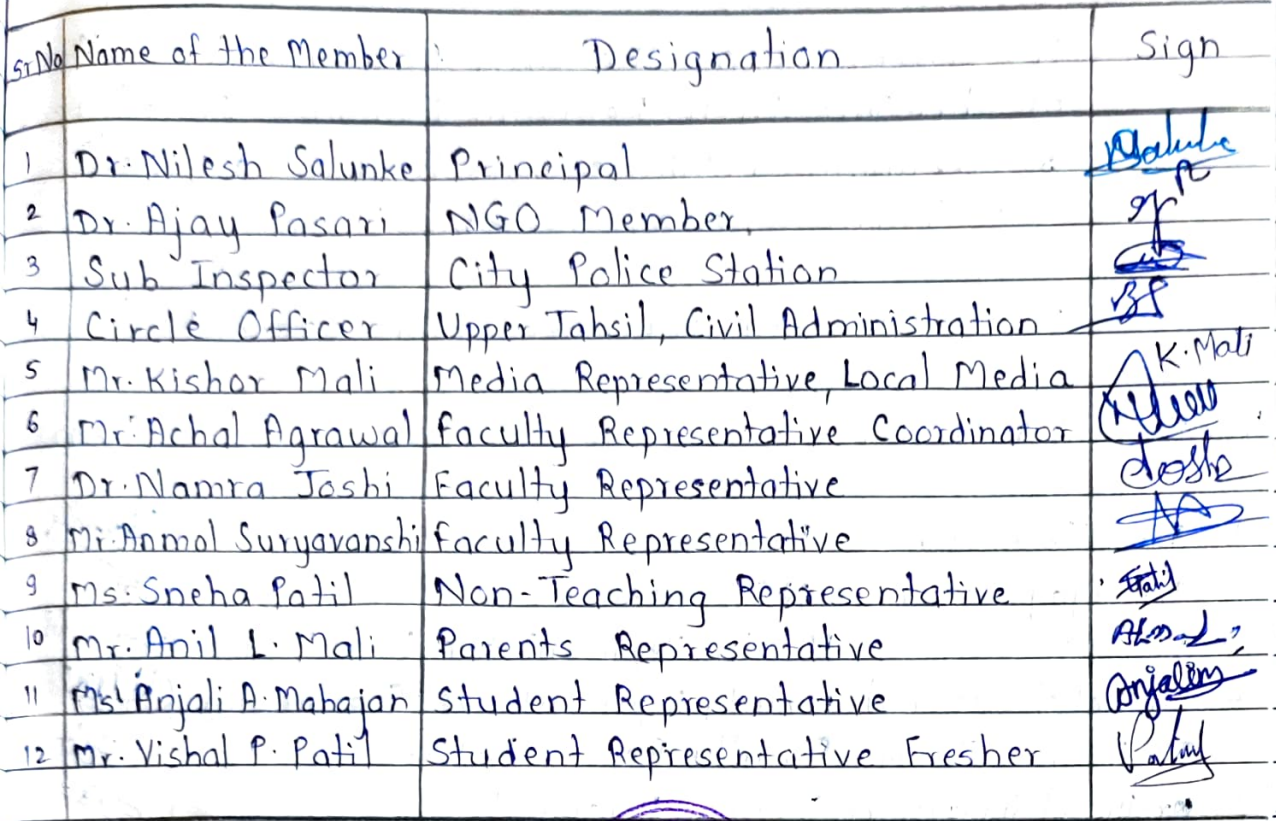 Sr No Name of the Member Designation Sign
1 Dr. Nilesh Salunke Principal
2 Dr. Ajay Pasari NGO Member,
3 Sub Inspector City Police Station
4 Circle Officer Upper Tahsil, Civil Administration
5 Mr. Kishor Mali Media Representative, Local Media K. Mali
6 Mr. Achal Agrawal Faculty Representative Coordinator
7 Dr. Namra Joshi Faculty Representative
8 Mr. Anmol Suryavanshi Faculty Representative
9 Ms. Sneha Patil Non-Teaching Representative
10 Mr. Anil L. Mali Parents Representative
11 Ms. Anjali A. Mahajan Student Representative
12 Mr. Vishal P. Patil Student Representative Fresher